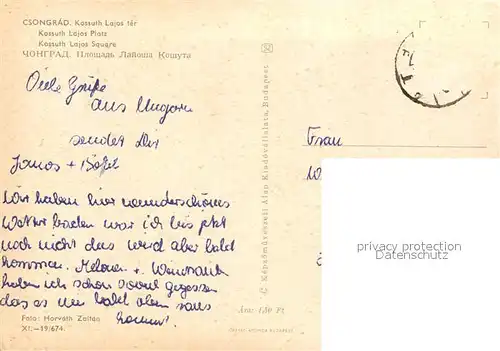 CSONGRÁD. Kossuth Lajos tér
Kossuth Lajos Platz
Kossuth Lajos Square
ЧОНГРАД. Площадь Лайоша Кошута
Viele Grüße
aus Ungarn
sendet Dir
Janos +
Wir haben hier wunderschönes
Wetter baden war ich bis jetzt
noch nicht das wird aber bald
kommen. Melonen + Weintraub
haben ich schon soviel gegessen
das es mir bald oben raus
kommt.
Foto: Horváth Zoltán
XI.—19/674.
Képzőművészeti Alap Kiadóvállalata, Budapest
Ára: 1,80 Ft
Frau
privacy protection